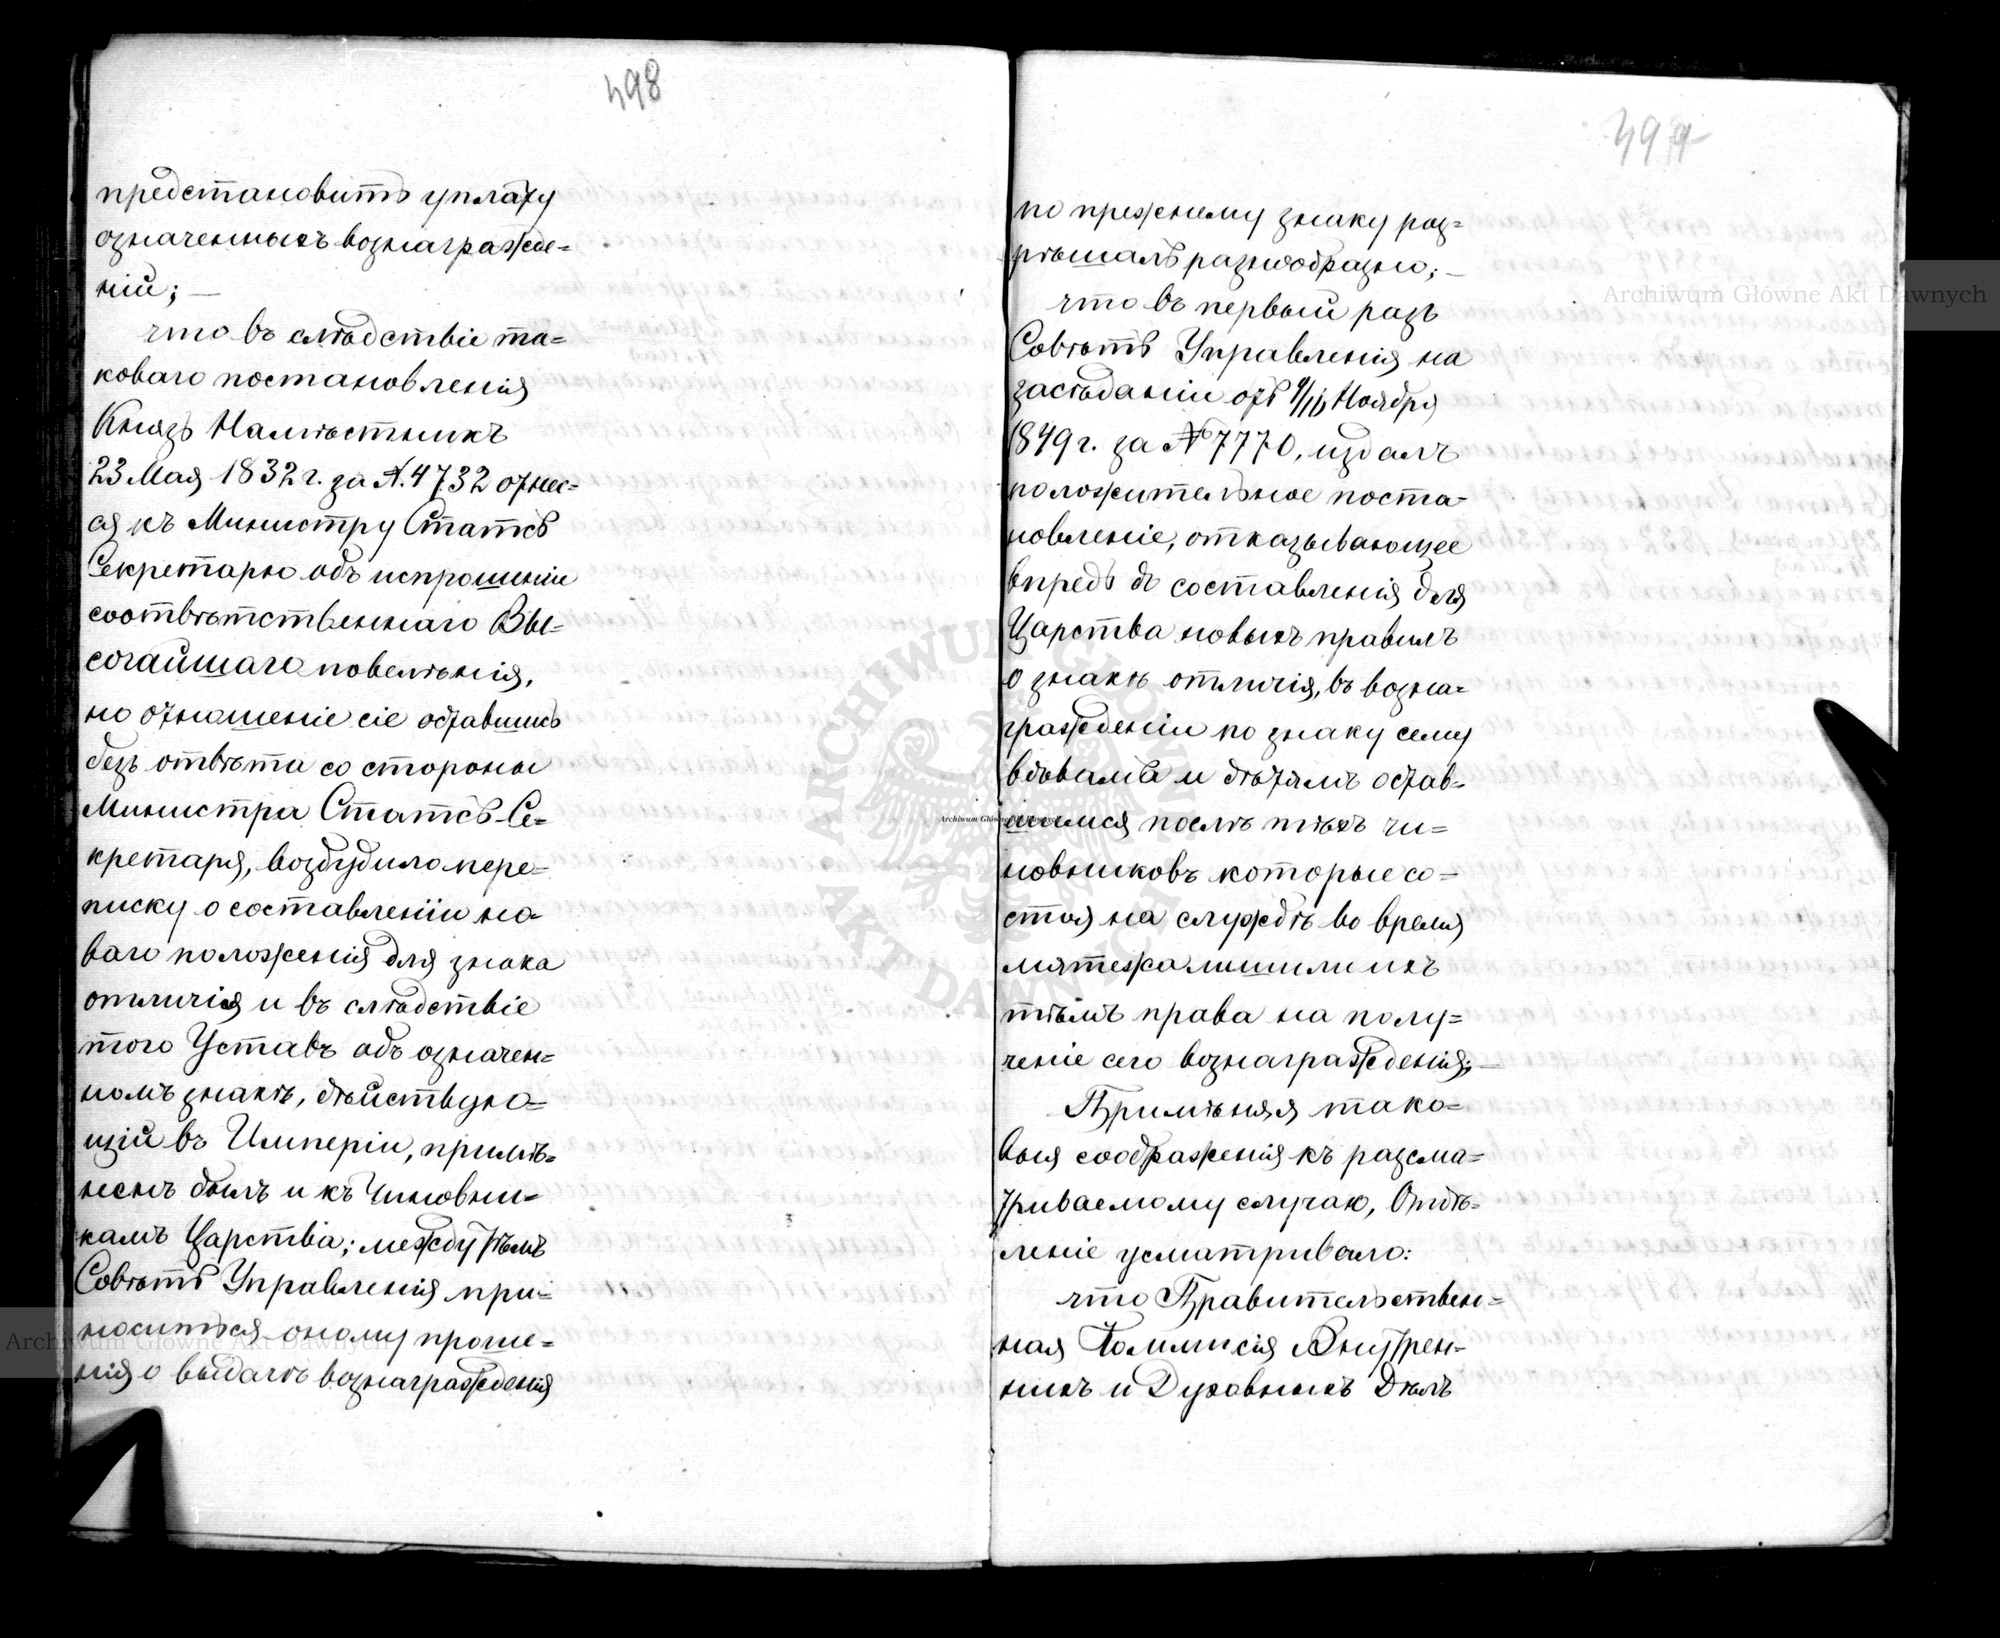 498
предстановить уплату
означенныхъ вознагражде=
ній; —
что въ слѣдствіе та=
коваго постановленія
Князь Намѣстникъ
23 Мая 1832 г. за N. 4732 отнес=
ся къ Министру Статсъ
Секретарю объ испрошеніи
соотвѣтственнаго Вы=
сочайшаго повелѣнія,
но отношеніе сіе оставшись
безъ отвѣта со стороны
Министра Статсъ-Се=
кретаря, возбудило пере=
писку о составленіи но=
ваго положенія для знака
отличія и въ слѣдствіе
того Уставъ объ означен=
номъ знакѣ, дѣйствую=
щій въ Имперіи, примѣ=
ненъ былъ и къ Чиновни=
камъ Царства; между тѣмъ
Совѣтъ Управленія при=
носиться оному проше=
нія о выдачѣ вознагражденія
499
по прежнему знаку раз=
рѣшалъ разнообразно; —
что въ первый разъ
Совѣтъ Управленія на
засѣданіи отъ 4/16 Ноября
1849 г. за № 7770, издалъ
положительное поста=
новленіе, отказывающее
впредь до составленія для
Царства новыхъ правилъ
о знакѣ отличія, въ возна=
гражденіи по знаку сему
вдовамъ и дѣтямъ остав=
шимся послѣ тѣхъ чи=
новниковъ которые со=
стоя на службѣ во время
мятежа лишили ихъ
тѣмъ права на полу=
ченіе сего вознагражденія; —
Примѣняя тако=
выя соображенія къ разсма=
триваемому случаю, Отдѣ=
леніе усматривало:
что Правительствен=
ная Коммисія Внутрен=
нихъ и Духовныхъ Дѣлъ
Archiwum Główne Akt Dawnych
Archiwum Główne Akt Dawnych
Archiwum Główne Akt Dawnych
ARCHIWUM GŁÓWNE AKT DAWNYCH